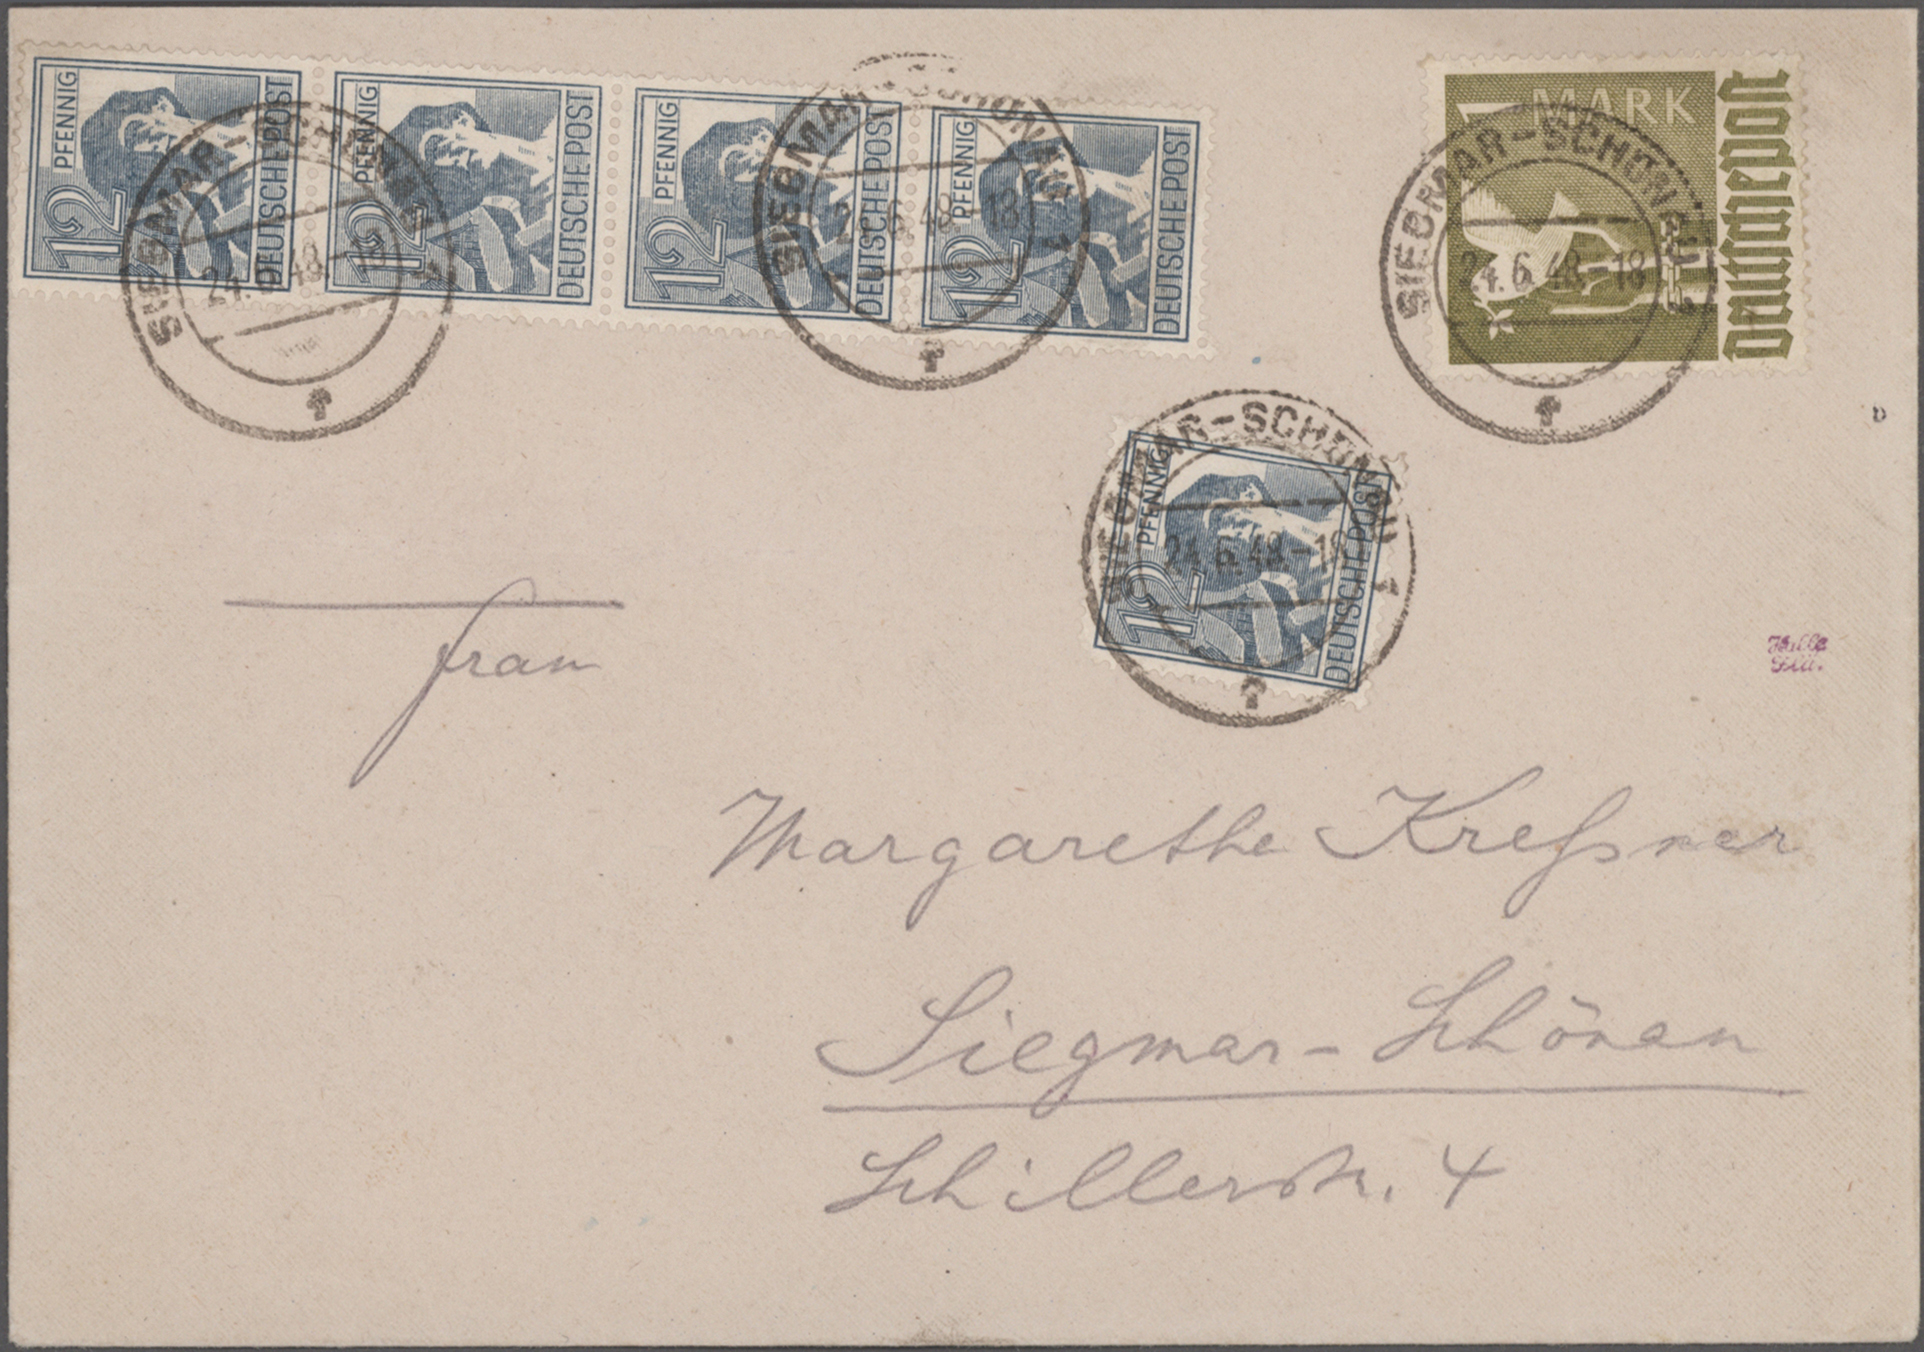 12 PFENNIG DEUTSCHE POST
12 PFENNIG DEUTSCHE POST
12 PFENNIG DEUTSCHE POST
12 PFENNIG DEUTSCHE POST
1 MARK
Deutsche Post
SIEGMAR-SCHÖNAU 1
24.6.48.-18
f
SIEGMAR-SCHÖNAU 1
24.6.48.-18
f
SIEGMAR-SCHÖNAU
24.6.48.-18
f
12 PFENNIG DEUTSCHE POST
SIEGMAR-SCHÖNAU 1
24.6.48.-18
f
Frau
Margarethe Kreßner
Siegmar-Schönau
Schillerstr. 4